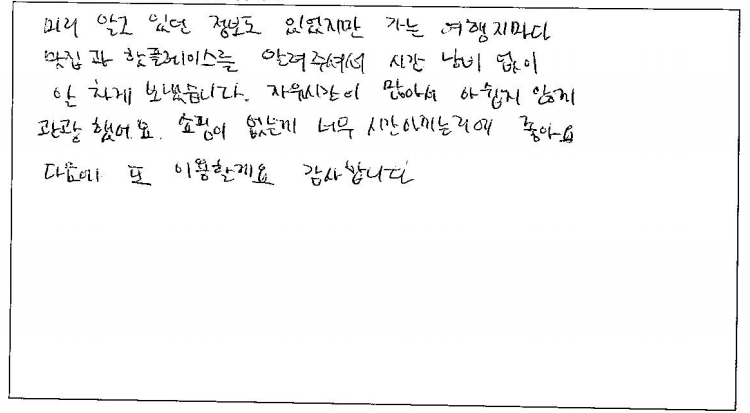 미리 알고 있던 정보도 있었지만 가는 여행지마다
맛집과 핫플레이스를 알려주셔서 시간 낭비 없이
알차게 보냈습니다. 자유시간이 많아서 아쉽지 않게
관광 했어요. 쇼핑이 없는게 너무 시간아끼는거에 좋아요
다음에 또 이용할게요 감사합니다